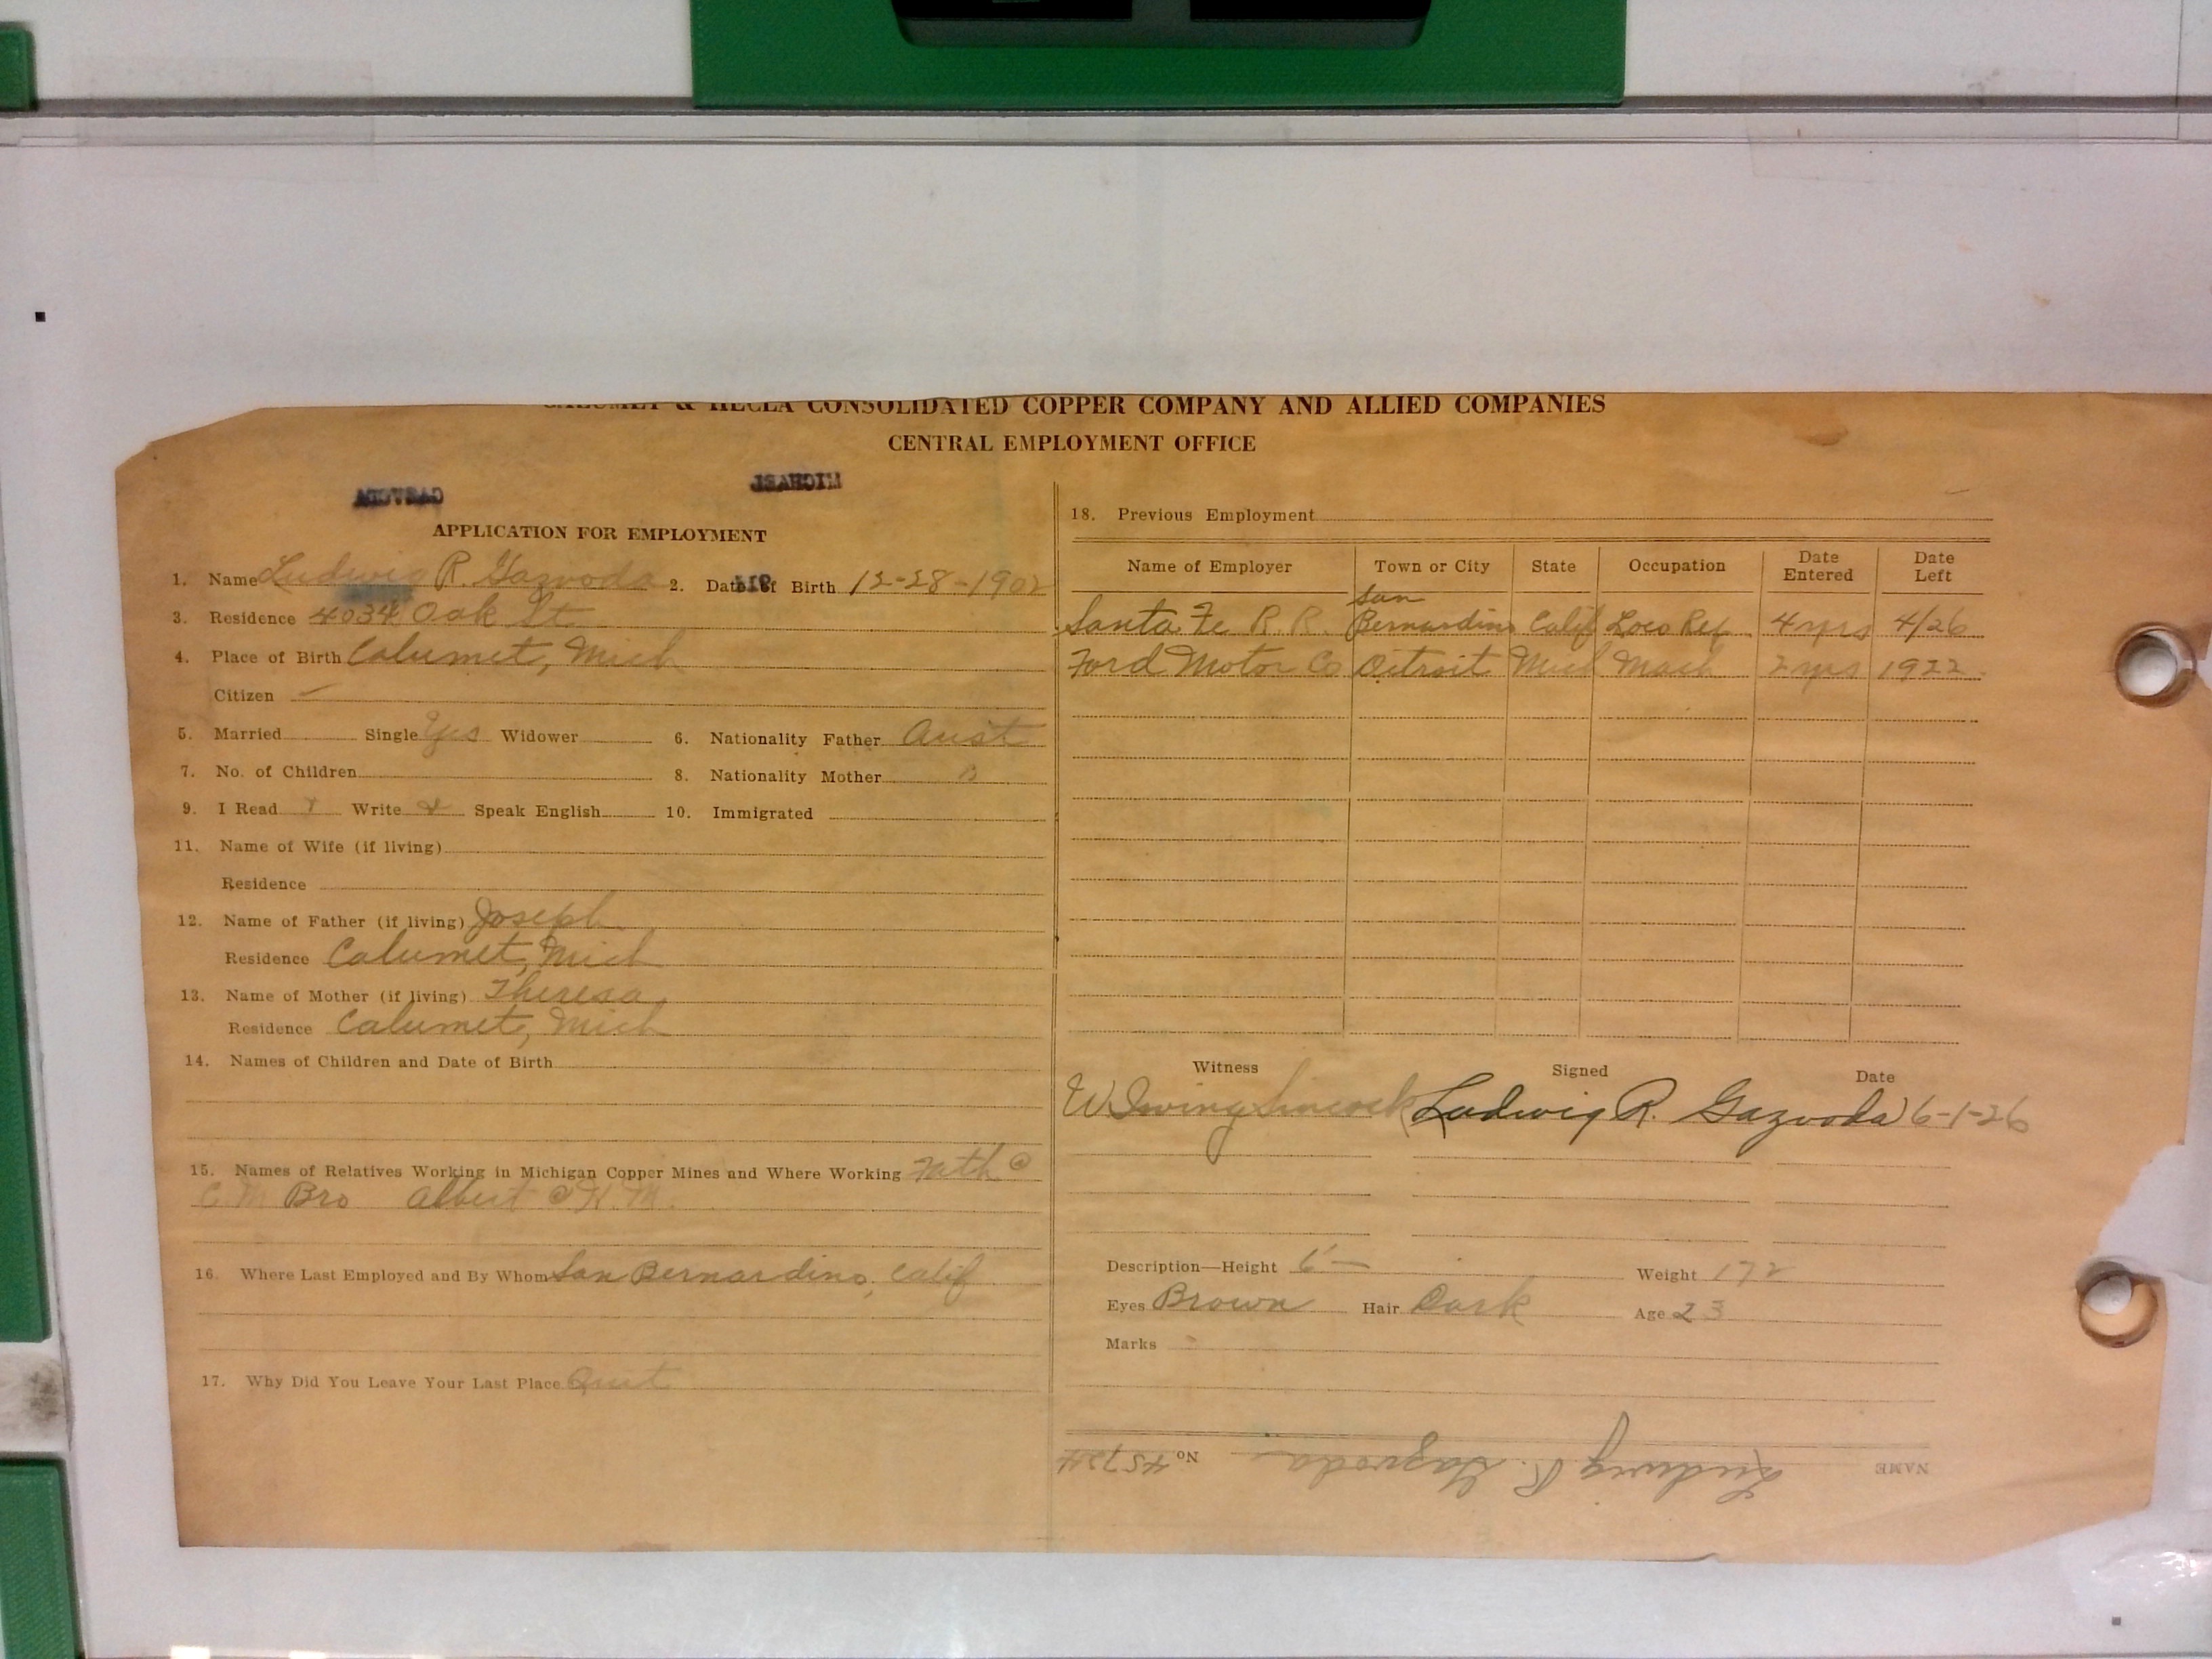 CALUMET & HECLA CONSOLIDATED COPPER COMPANY AND ALLIED COMPANIES
CENTRAL EMPLOYMENT OFFICE
APPLICATION FOR EMPLOYMENT
1. Name Ludwig R. Gazvoda 2. Date of Birth 12-28-1902
3. Residence 4034 Oak St.
4. Place of Birth Calumet, Mich
Citizen
5. Married Single Yes Widower 6. Nationality Father Aust
7. No. of Children 8. Nationality Mother "
9. I Read Write Speak English 10. Immigrated
11. Name of Wife (if living)
Residence
12. Name of Father (if living) Joseph
Residence Calumet, Mich
13. Name of Mother (if living) Theresa
Residence Calumet, Mich
14. Names of Children and Date of Birth
15. Names of Relatives Working in Michigan Copper Mines and Where Working Fath @
C.M Bro Albert @ K.M.
16. Where Last Employed and By Whom San Bernardino, Calif
17. Why Did You Leave Your Last Place Quit
18. Previous Employment
Name of Employer Town or City State Occupation Date Entered Date Left
Santa Fe R R. San Bernardino Calif Loco Rep 4 yrs 4/26
Ford Motor Co Ditroit Mich Mach 2 yrs 1922
Witness Signed Date
W Irving Ludwig R. Gazvoda 6-1-26
Description—Height 6'— Weight 172
Eyes Brown Hair Dark Age 23
Marks
NAME Ludwig R. Gazvoda No 45724